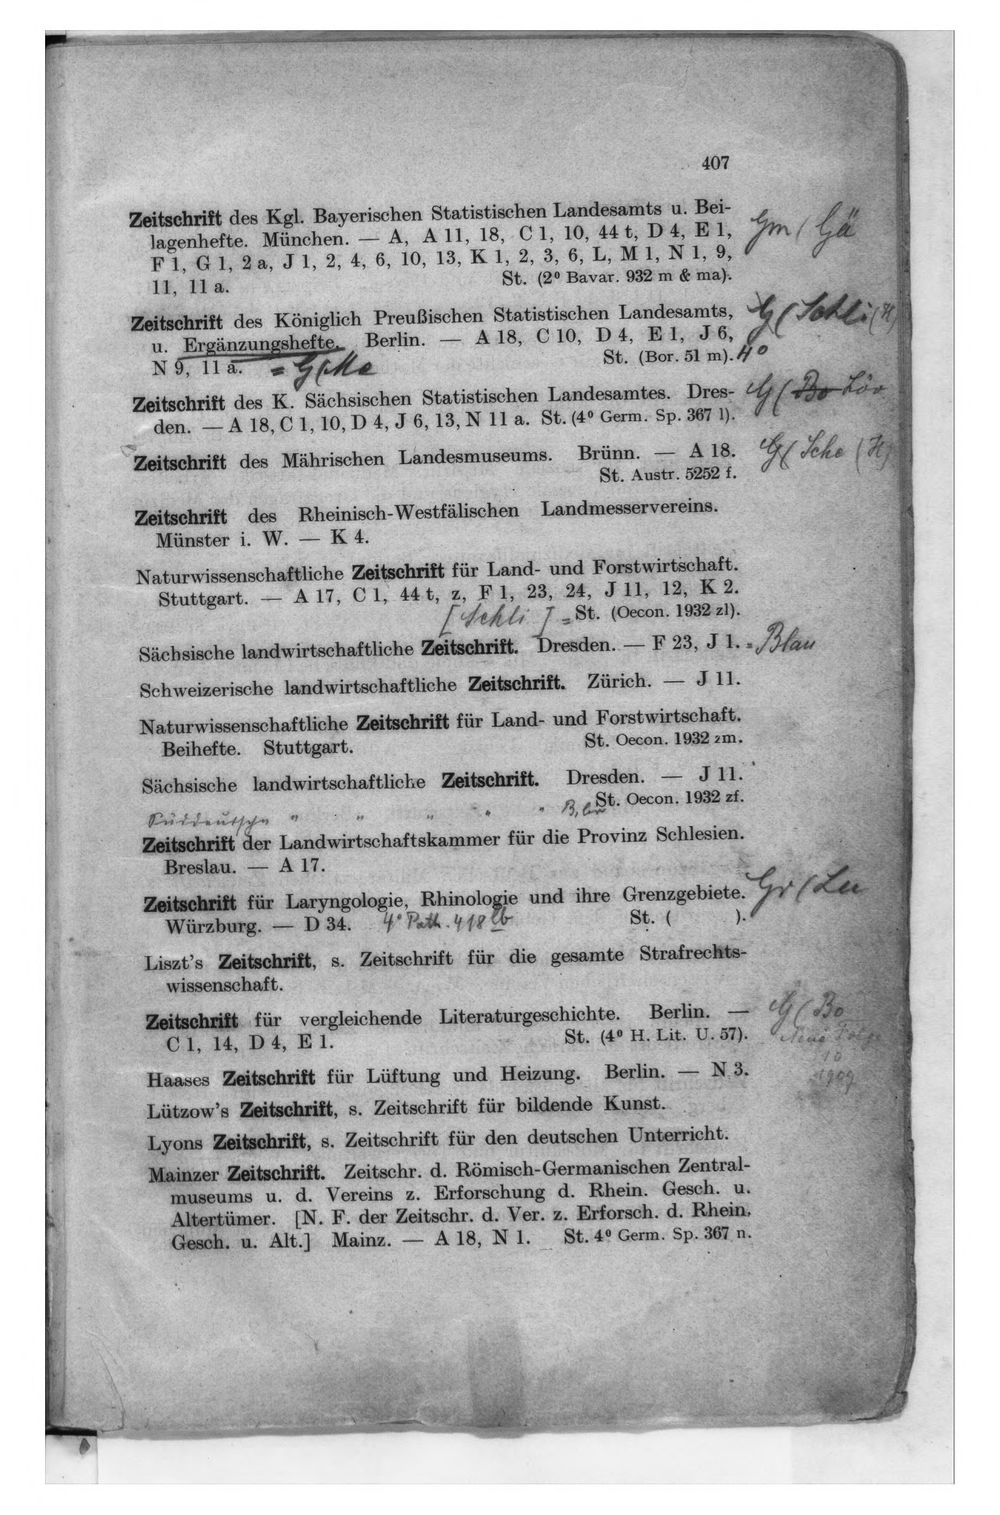 407
Zeitschrift des Kgl. Bayerischen Statistischen Landesamts u. Bei-
lagenhefte. München. — A, A 11, 18, C 1, 10, 44 t, D 4, E 1,
F 1, G 1, 2 a, J 1, 2, 4, 6, 10, 13, K 1, 2, 3, 6, L, M 1, N 1, 9,
11, 11 a. St. (2⁰ Bavar. 932 m & ma).
Gm ( Gä
Zeitschrift des Königlich Preußischen Statistischen Landesamts,
u. Ergänzungshefte. Berlin. — A 18, C 10, D 4, E 1, J 6,
N 9, 11 a. = G (Me St. (Bor. 51 m). 4⁰
G ( Schli (H)
Zeitschrift des K. Sächsischen Statistischen Landesamtes. Dres-
den. — A 18, C 1, 10, D 4, J 6, 13, N 11 a. St. (4⁰ Germ. Sp. 367 l).
G ( Bo Lör
Zeitschrift des Mährischen Landesmuseums. Brünn. — A 18.
St. Austr. 5252 f.
G ( Sche (H)
Zeitschrift des Rheinisch-Westfälischen Landmesservereins.
Münster i. W. — K 4.
Naturwissenschaftliche Zeitschrift für Land- und Forstwirtschaft.
Stuttgart. — A 17, C 1, 44 t, z, F 1, 23, 24, J 11, 12, K 2.
[ Schli ] = St. (Oecon. 1932 zl).
Sächsische landwirtschaftliche Zeitschrift. Dresden. — F 23, J 1. = Blau
Schweizerische landwirtschaftliche Zeitschrift. Zürich. — J 11.
Naturwissenschaftliche Zeitschrift für Land- und Forstwirtschaft.
Beihefte. Stuttgart. St. Oecon. 1932 zm.
Sächsische landwirtschaftliche Zeitschrift. Dresden. — J 11.
St. Oecon. 1932 zf.
Zeitschrift der Landwirtschaftskammer für die Provinz Schlesien.
Breslau. — A 17.
Zeitschrift für Laryngologie, Rhinologie und ihre Grenzgebiete.
Würzburg. — D 34. 4⁰ Path. 418 lb St. ( ).
Gr ( Lu
Liszt's Zeitschrift, s. Zeitschrift für die gesamte Strafrechts-
wissenschaft.
Zeitschrift für vergleichende Literaturgeschichte. Berlin. —
C 1, 14, D 4, E 1. St. (4⁰ H. Lit. U. 57).
G ( Bo
Neue Folge
10
1909
Haases Zeitschrift für Lüftung und Heizung. Berlin. — N 3.
Lützow's Zeitschrift, s. Zeitschrift für bildende Kunst.
Lyons Zeitschrift, s. Zeitschrift für den deutschen Unterricht.
Mainzer Zeitschrift. Zeitschr. d. Römisch-Germanischen Zentral-
museums u. d. Vereins z. Erforschung d. Rhein. Gesch. u.
Altertümer. [N. F. der Zeitschr. d. Ver. z. Erforsch. d. Rhein.
Gesch. u. Alt.] Mainz. — A 18, N 1. St. 4⁰ Germ. Sp. 367 n.